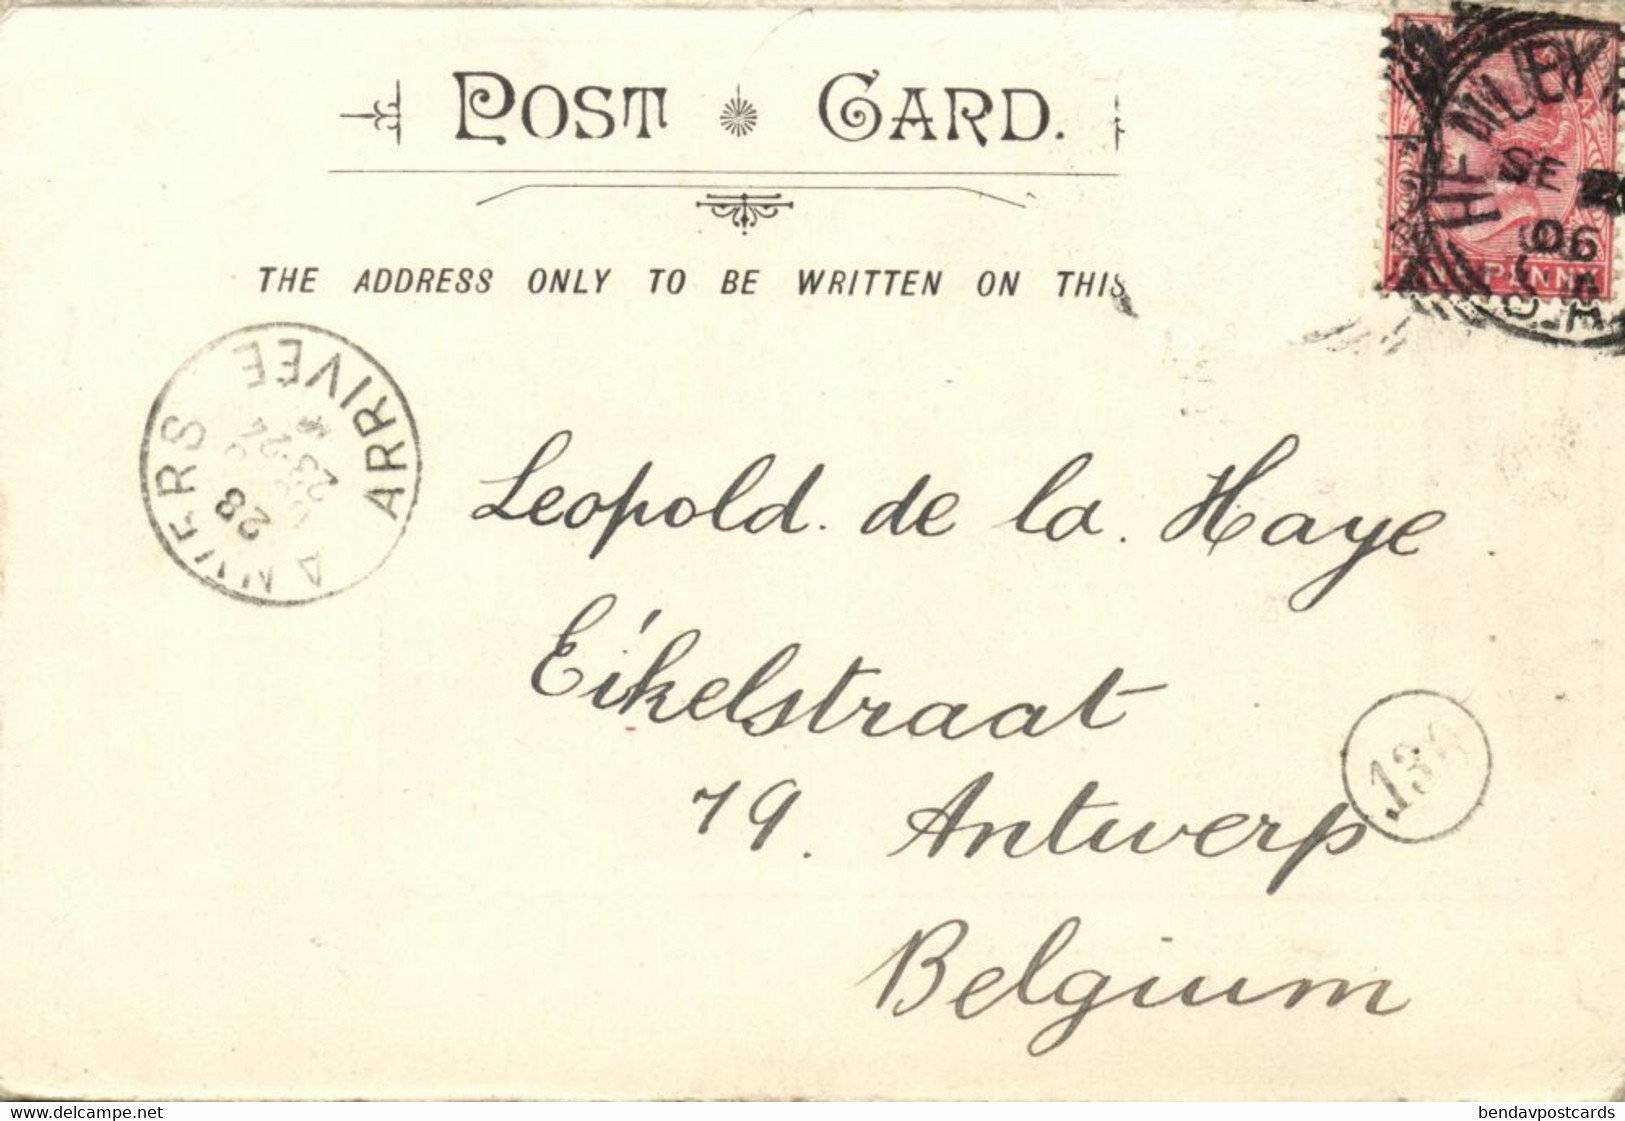 POST CARD.
THE ADDRESS ONLY TO BE WRITTEN ON THIS
HENLEY B
SE
06
PENNY
ANVERS ARRIVÉE
28
23-24
Leopold. de la. Haye
Eikelstraat
79. Antwerp
134
Belgium
delcampe.net
bendavpostcards